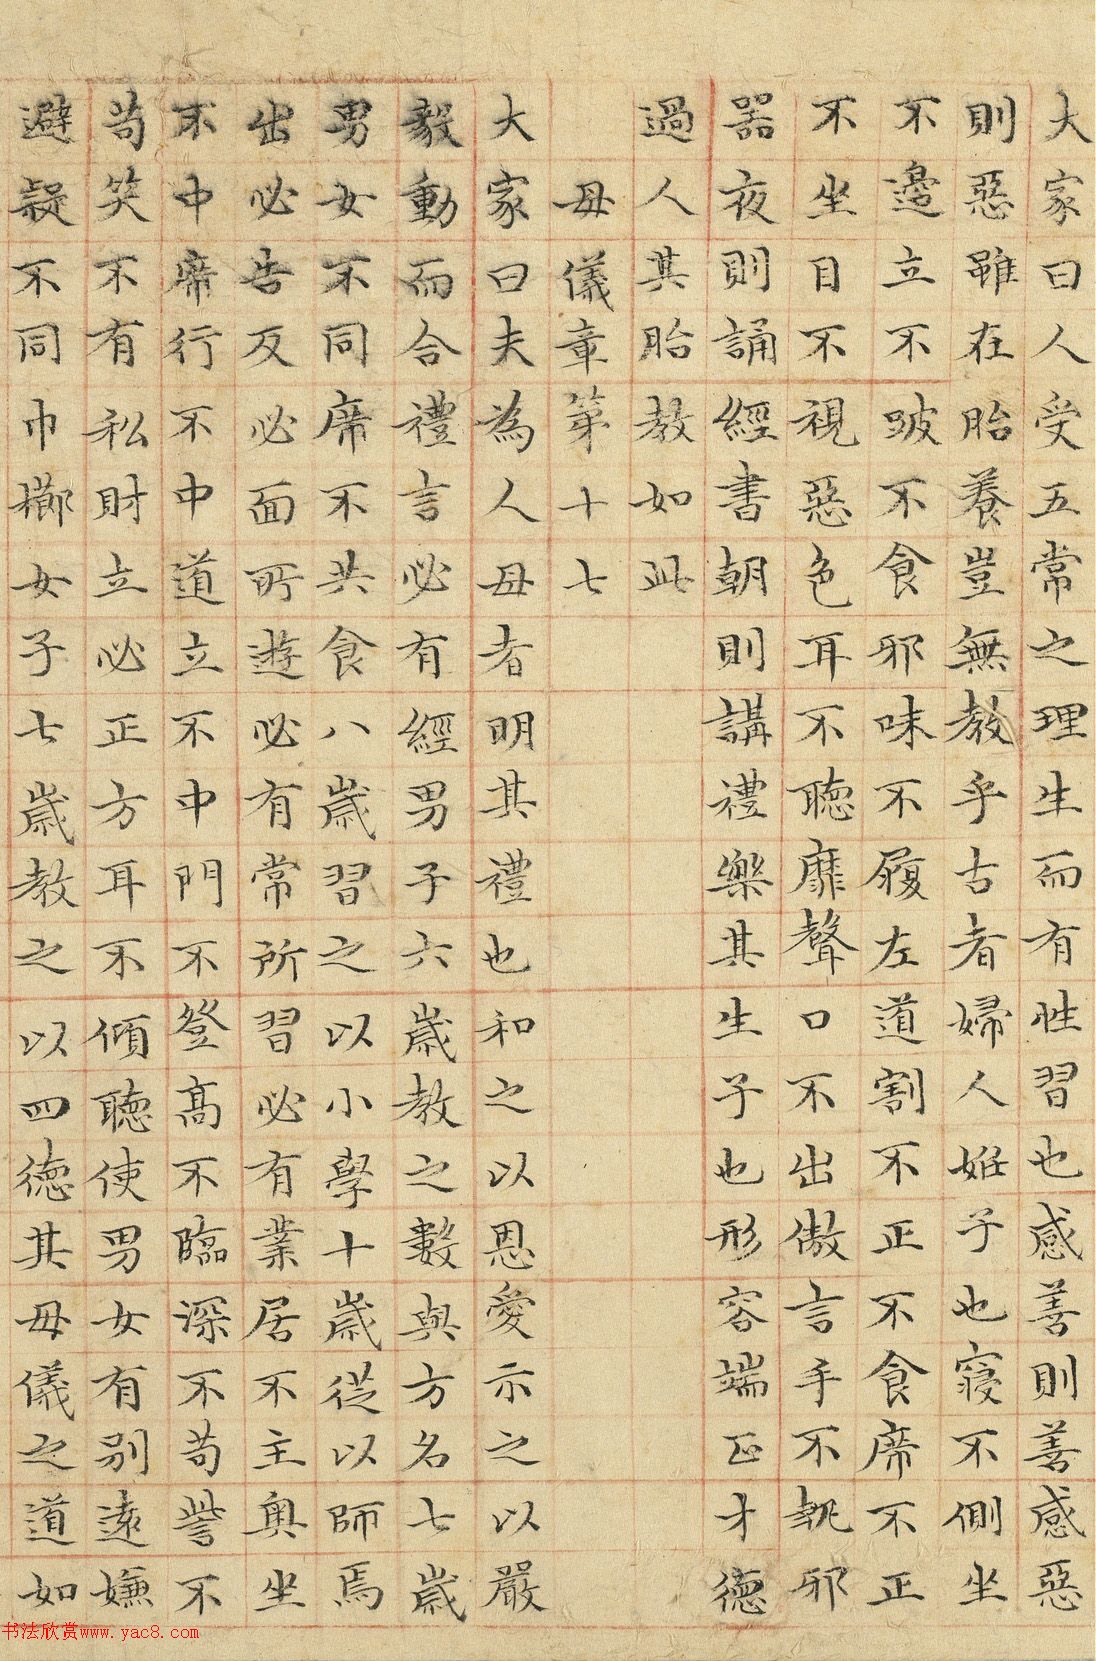 大家曰人受五常之理生而有性習也感善則善感惡
則惡雖在胎養豈無教乎古者婦人姙子也寢不側坐
不邊立不跛不食邪味不履左道割不正不食席不正
不坐目不視惡色耳不聽靡聲口不出傲言手不執邪
器夜則誦經書朝則講禮樂其生子也形容端正才德
過人其胎教如此
母儀章第十七
大家曰夫為人母者明其禮也和之以恩愛示之以嚴
毅動而合禮言必有經男子六歲教之數與方名七歲
男女不同席不共食八歲習之以小學十歲從以師焉
出必告反必面所遊必有常所習必有業居不主奧坐
不中席行不中道立不中門不登高不臨深不苟訾不
苟笑不有私財立必正方耳不傾聽使男女有別遠嫌
避疑不同巾櫛女子七歲教之以四德其母儀之道如
书法欣赏www.yac8.com